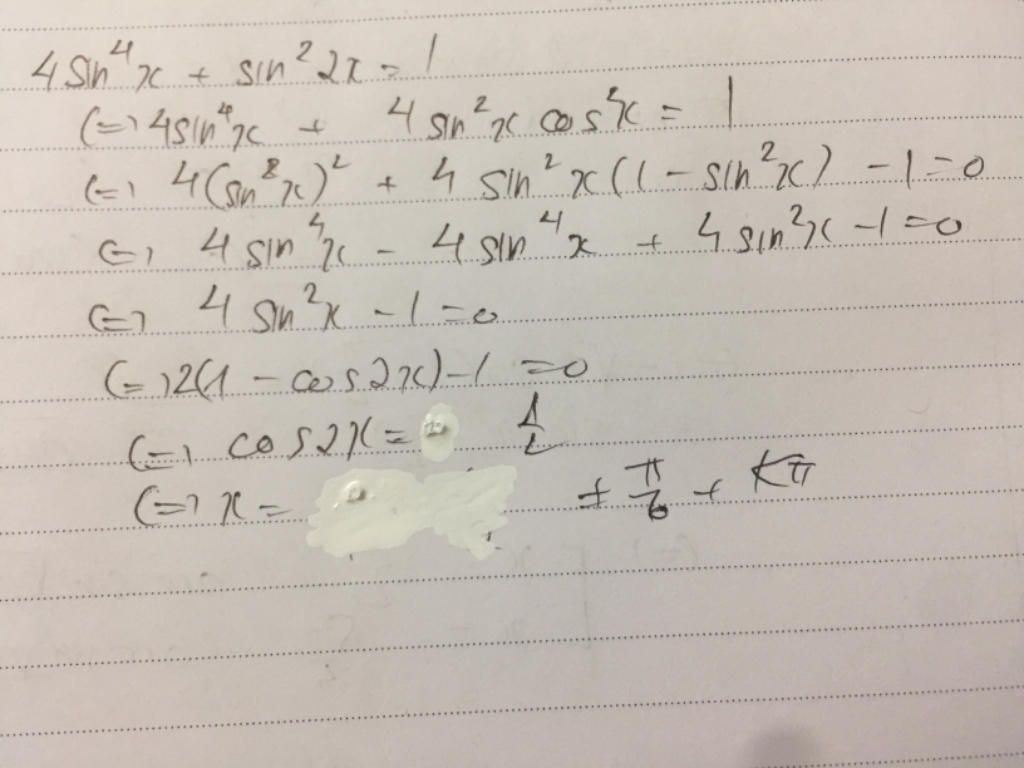 4 sin⁴x + sin²2x = 1
(=) 4sin⁴x + 4 sin²x cos²x = 1
(=) 4(sin²x)² + 4 sin²x(1 - sin²x) - 1 = 0
(=) 4 sin⁴x - 4 sin⁴x + 4 sin²x - 1 = 0
(=) 4 sin²x - 1 = 0
(=) 2(1 - cos2x) - 1 = 0
(=) cos2x = 1/2
(=) x = ± π/6 + kπ